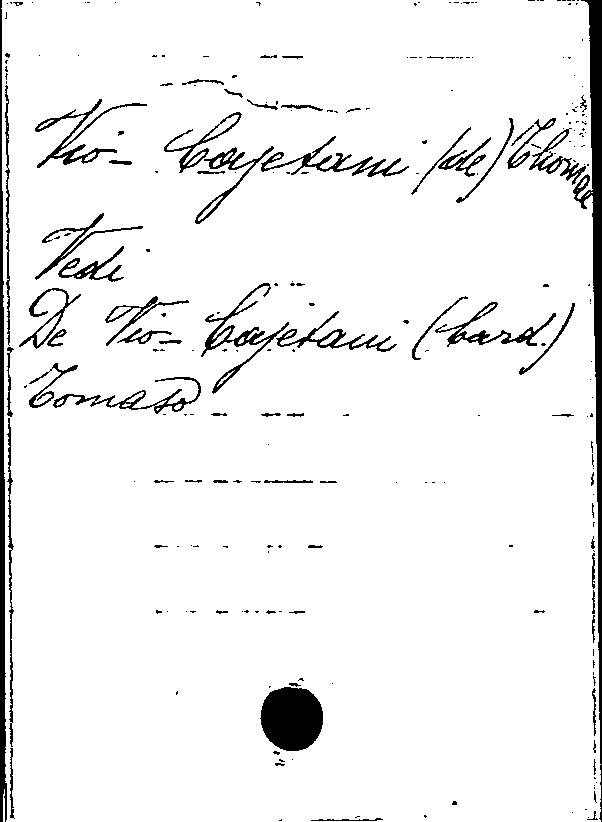 Vio- Cajetani (de) Thomae
Vedi
De Vio- Cajetani (Card.)
Tomaso